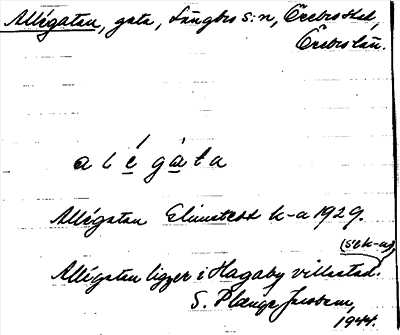 Allégatan, gata, Långbro s:n, Örebro hd,
Örebro län.
a l é g à t a
Allégatan Elmstedt k-a 1929.
(sek-a),
Allégatan ligger i Hagaby villastad.
S. Plænge Jacobson,
1944.